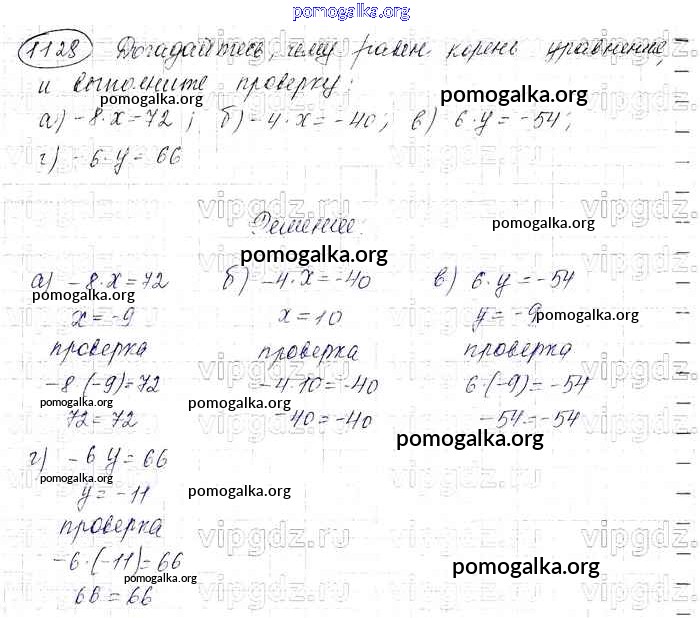 pomogalka.org
1128 Догадайтесь, чему равен корень уравнения,
и выполните проверку:
pomogalka.org pomogalka.org
а) -8·x=72; б) -4·x=-40; в) 6·y=-54;
г) -6·y=66
vipgdz.ru vipgdz.ru vipgdz.ru
pomogalka.org
Решение:
pomogalka.org
pomogalka.org
а) -8·x=72 б) -4·x=-40 в) 6·y=-54
pomogalka.org
x=-9 x=10 y=-9
pomogalka.org
проверка проверка проверка
-8·(-9)=72 -4·10=-40 6·(-9)=-54
pomogalka.org pomogalka.org
72=72 -40=-40 -54=-54
pomogalka.org
г) -6·y=66
pomogalka.org
y=-11
pomogalka.org
проверка
vipgdz.ru vipgdz.ru vipgdz.ru
-6·(-11)=66
pomogalka.org pomogalka.org
66=66